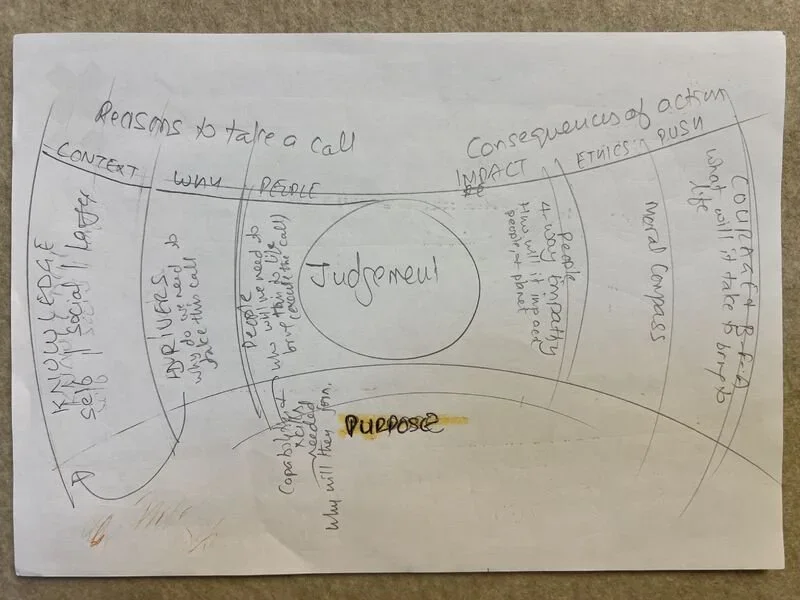 Reasons to take a call
Consequences of action
CONTEXT
WHY
PEOPLE
IMPACT
ETHICS
PUSH
KNOWLEDGE
self | social | larger
DRIVERS
why do we need to
take this call
PEOPLE
who will we need to
this to life
(execute the call)
Capability &
needed
Why will they join.
Judgement
people
4-way Empathy
How will it impact
people & planet
Moral Compass
COURAGE +
what will it take to bring to
life
PURPOSE